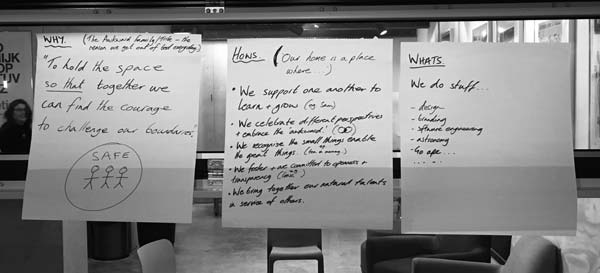 WHY.
(The Awkward family/tribe – the
reason we get out of bed everyday)
"To hold the space
so that together we
can find the courage
to challenge our boundaries."
SAFE
HOWS.
(Our home is a place
where....)
• We support one another to
learn + grow (eg
• We celebrate different perspectives
+ embrace the 'awkward.'
• We recognise the small things enable
the great things.
• We foster + are committed to openness +
transparency
• We bring together our natural talents
a service of others.
WHATS.
We do stuff...
- design
- branding
- software engineering
- astronomy
- Go ape...